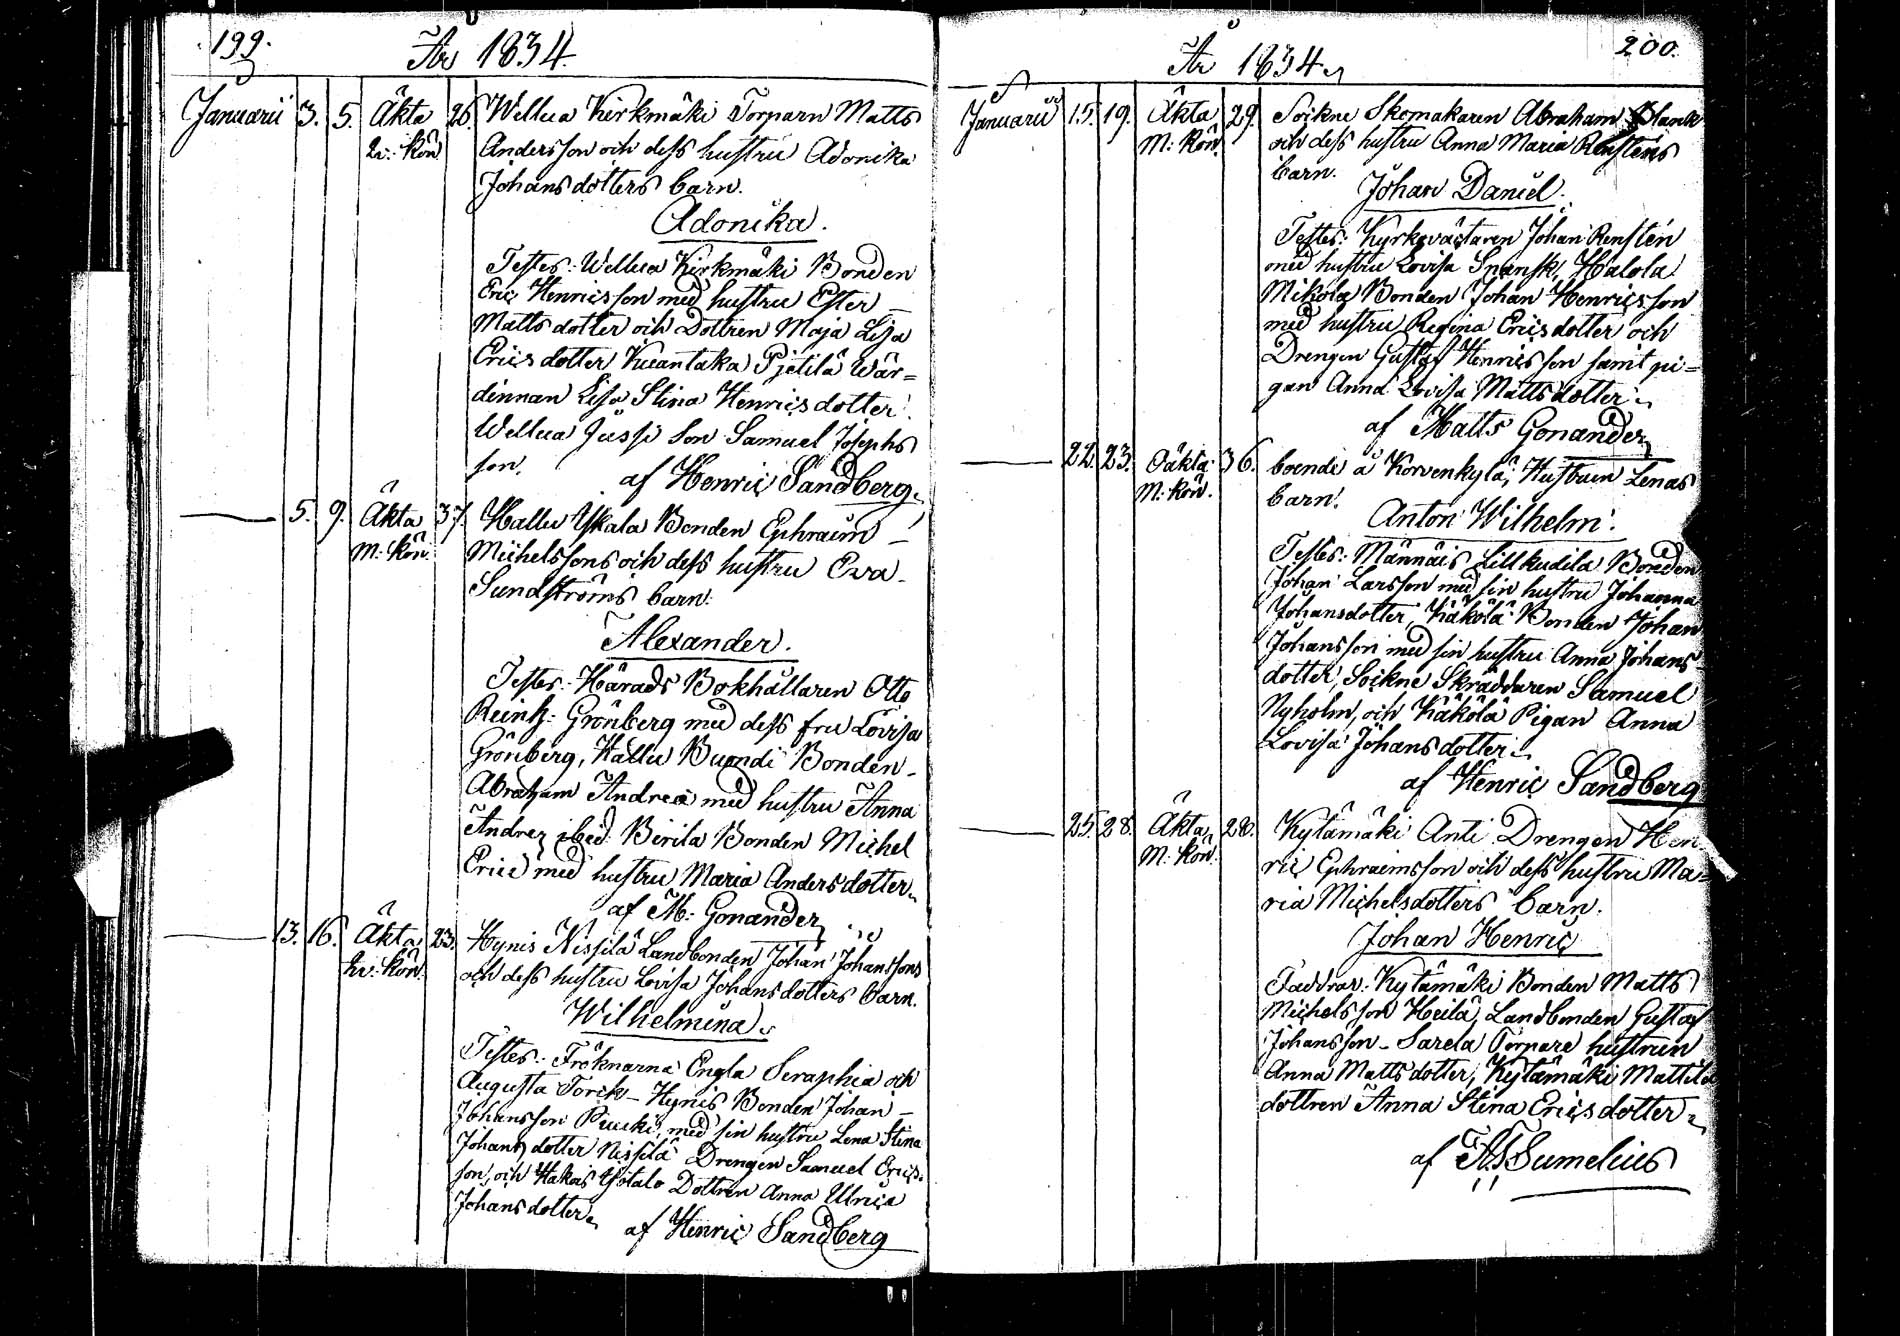 199.
År 1834.
Januarii 3. 5. Äkta 26. Wellua Kirkmäki Torparn Matts
Qv: Kön. Andersson och dess hustru Adonika
Johansdotters barn.
Adonika.
Testes: Wellua Kirkmäki Bonden
Eric Henricsson med hustru Ester
Mattsdotter och Dottren Maja Lisa
Ericsdotter Kuantaka Pjetilä Wär=
dinnan Lisa Stina Henricsdotter.
Wellua Jussi Son Samuel Josephs
son.
af Henric Sandberg.
5. 9. Äkta 37. Hallu Yskala Bonden Ephraim
M: Kön. Michelssons och dess hustru Eva
Sundströms barn.
Alexander.
Testes: Härads Bokhållaren Otto
Reinh: Grönberg med dess fru Lovisa
Grönberg, Hallu Buondi Bonden
Abraham Andreæ med hustru Anna
Andrez ibid: Birila Bonden Michel
Erici med hustru Maria Andersdotter
af M: Gonander
13. 16. Äkta 23. Hynis Nissilä Landbonden Johan Johanssons
Qv: Kön. och dess hustru Lovisa Johansdotters barn.
Wilhelmina.
Testes: Fröknarna Engla Seraphia och
Augusta Torck - Hynis Bonden Johan
Johansson med sin hustru Lena Stina
Johansdotter Nissilä Drengen Samuel Erics=
son, och Hakais Ysotalo Dottren Anna Ulrica
Johansdotter
af Henric Sandberg
200.
År 1834
Januarii 15. 19. Äkta 29. Sockne Skomakaren Abraham Blank
M: Kön. och dess hustru Anna Maria Rensténs
barn.
Johan Daniel.
Testes: Kyrkväctaren Johan Renstén
med hustru Lovisa Spansk, Halola
Mikola Bonden Johan Henricsson
med hustru Regina Ericsdotter och
Drengen Gustaf Henricsson samt pi=
gan Anna Lovisa Mattsdotter
af Matts Gonander
22. 23. Oäkta 36. boende å Korvenkylä, Hustrun Lenas
M: Kön. barn.
Anton Wilhelm.
Testes: Männäis Lillkudila Bonden
Johan Larsson med sin hustru Johanna
Johansdotter, Käkölä Bonden Johan
Johansson med sin hustru Anna Johans
dotter, Sockne Skräddaren Samuel
Nyholm, och Käkölä Pigan Anna
Lovisa Johansdotter
af Henric Sandberg
25. 28. Äkta 28. Kytämäki Anti Drengen Hen
M: Kön. ric Ephraimsson och dess hustru Ma=
ria Michelsdotters barn.
Johan Henric
Faddrar: Kytämäki Bonden Matts
Michelsson Heilä, Landbonden Gustaf
Johansson - Sarela Torpare hustrun
Anna Mattsdotter, Kytämäki Mattila
dottren Anna Stina Ericsdotter
af Sumelius